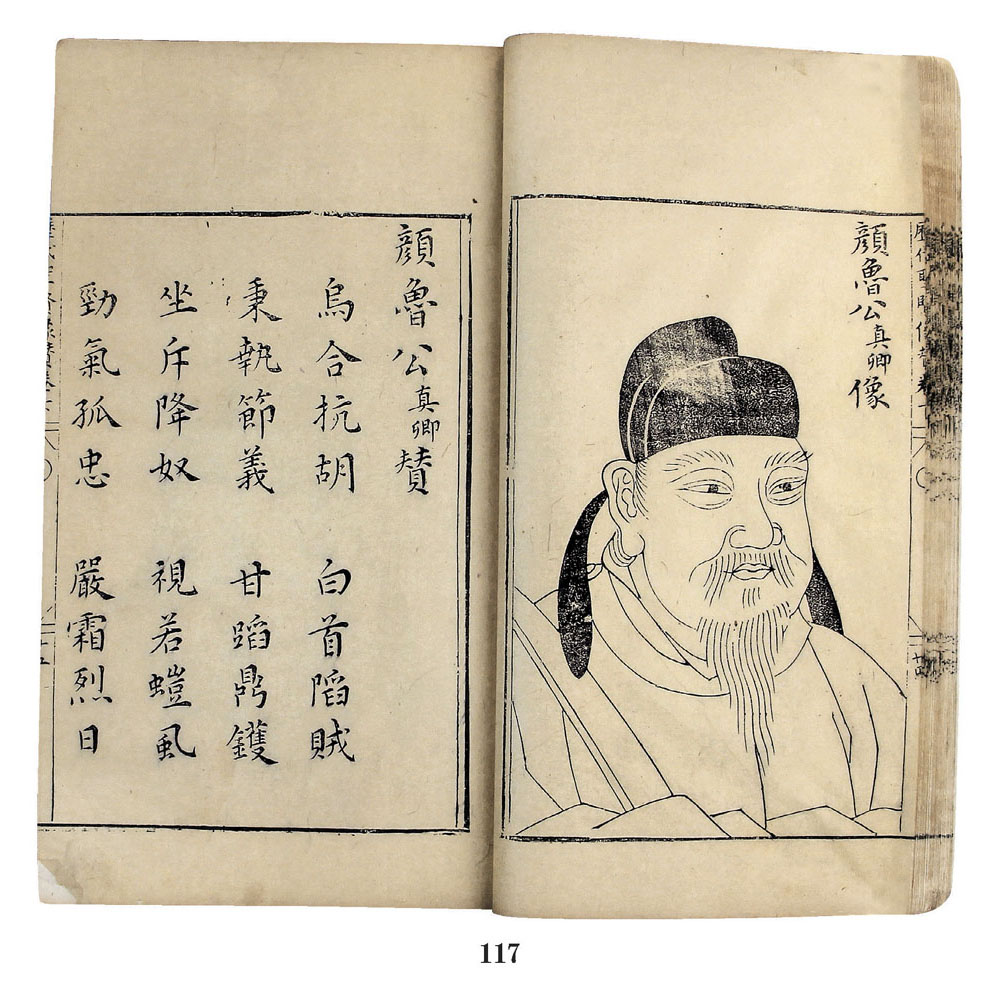 顏魯公真卿像
顏魯公真卿賛
烏合抗胡 白首陷賊
秉執節義 甘蹈鼎鑊
坐斥降奴 視若螘虱
勁氣孤忠 嚴霜烈日
117